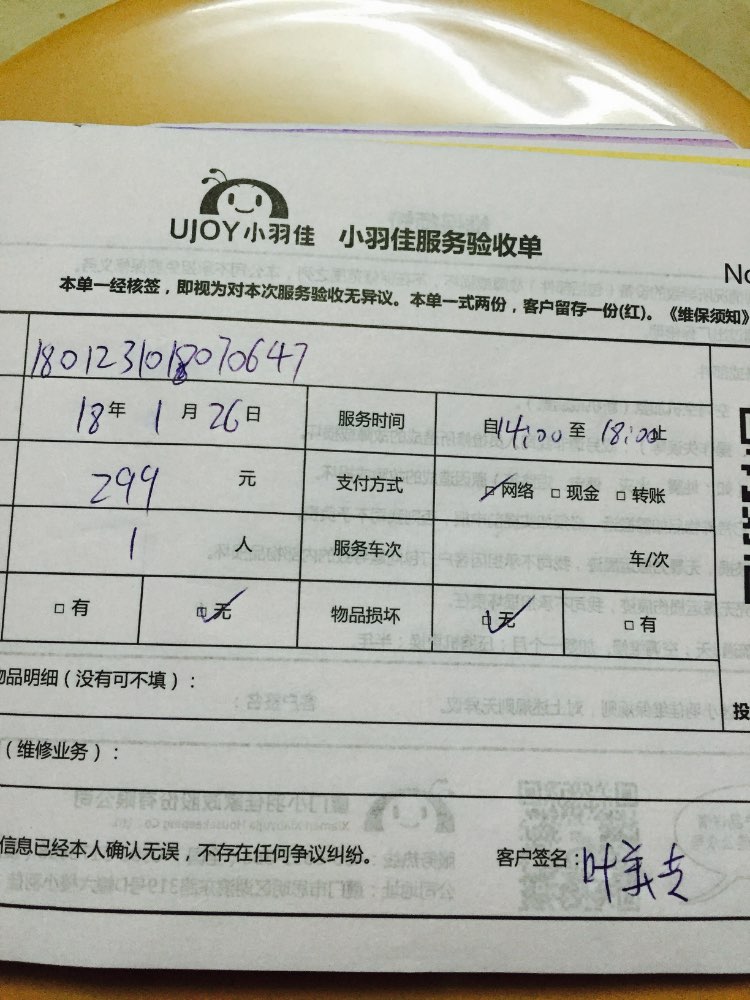 UJOY小羽佳 小羽佳服务验收单
No
本单一经核签，即视为对本次服务验收无异议。本单一式两份，客户留存一份(红)。《维保须知》
1801231018070647
18年 1月 26日 服务时间 自14:00至18:00止
299 元 支付方式 □网络 □现金 □转账
1 人 服务车次 车/次
□有 □无 物品损坏 □无 □有
物品明细（没有可不填）：
投
（维修业务）：
信息已经本人确认无误，不存在任何争议纠纷。 客户签名：